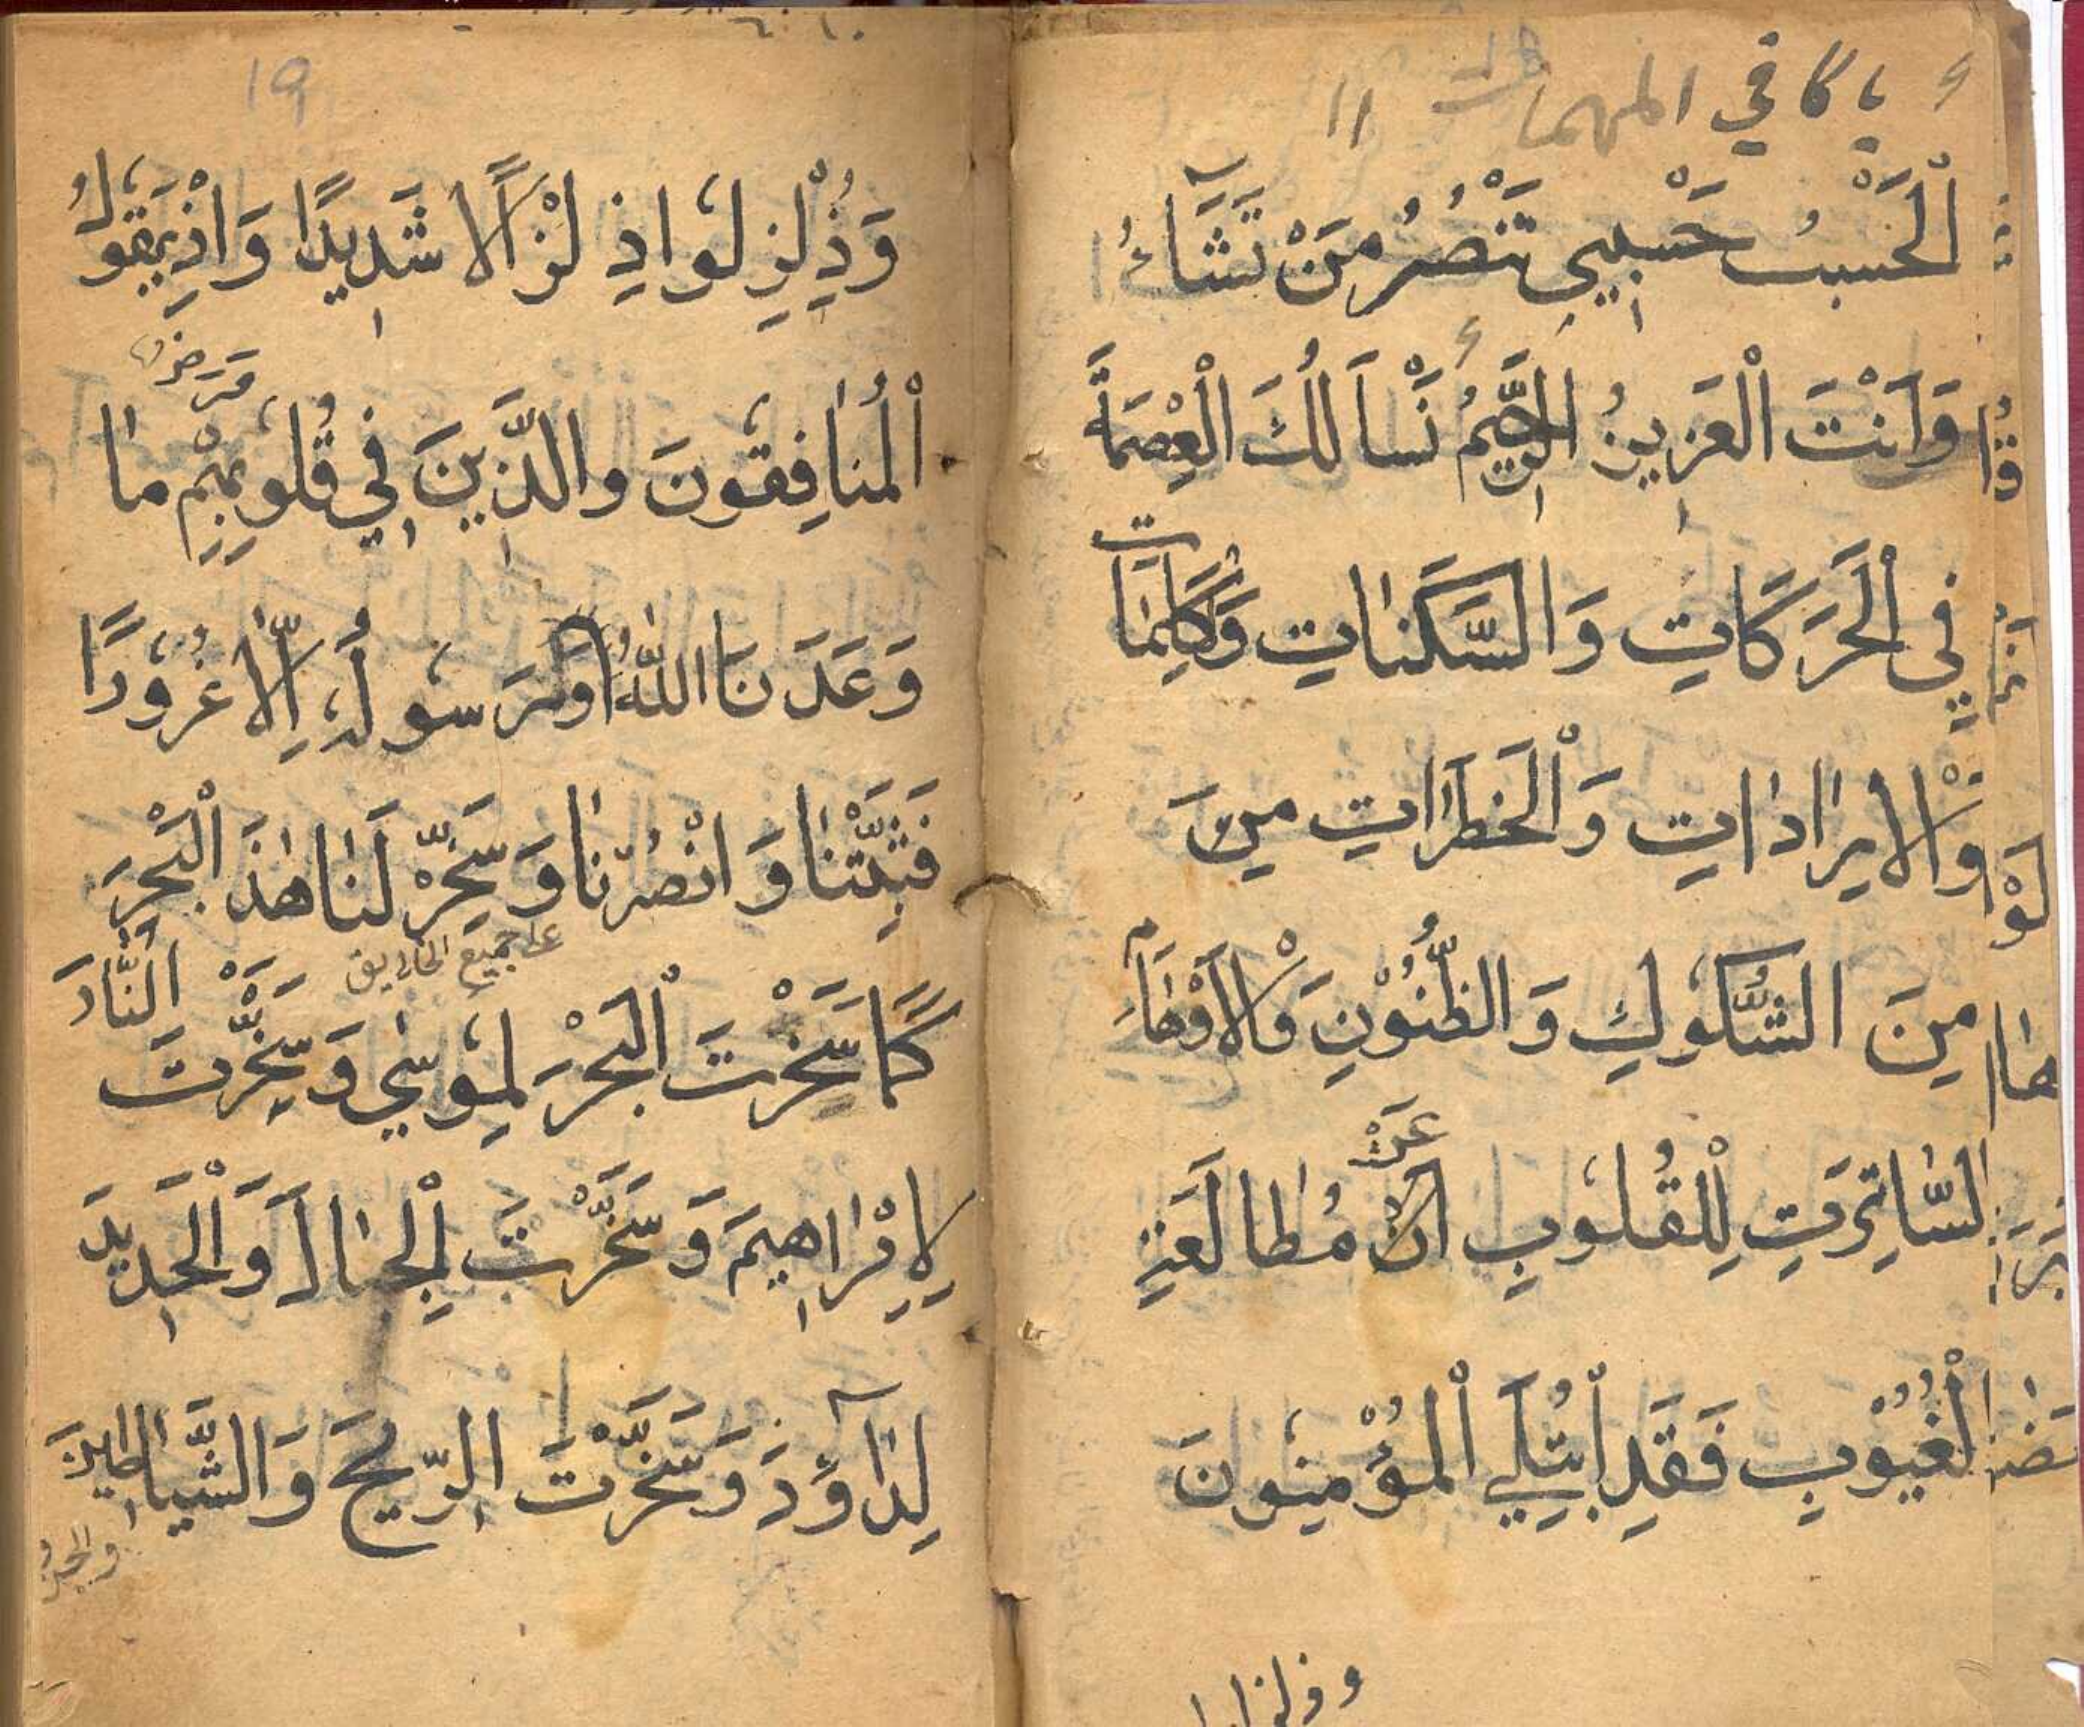 يا كافي المهمات ١١
اَلْحَسْبُ حَسْبِي تَنْصُرُ مَنْ تَشَآءُ
وَاَنْتَ الْعَزِيزُ الرَّحِيمُ نَسْاَلُكَ الْعِصْمَةَ
فِي الْحَرَكَاتِ وَالسَّكَنَاتِ وَكَلِمَاتِ
وَالْاِيرَادَاتِ وَالْخَطَرَاتِ مِنَ
مِنَ الشُّكُوكِ وَالظُّنُوْنِ وَالْاَوْهَامِ
السَّاتِرَتِ لِلْقُلُوبِ اَنْ عَنْ مُطَالَعَةِ
الْغُيُوْبِ فَقَدِ ابْتُلِيَ الْمُؤْمِنُونَ
وزلزلوا
19
وَذُلْزِلُوا ذِلْزَالًا شَدِيدًا وَاِذْ يَقُولُ
الْمُنَافِقُونَ والَّذِينَ فِي قُلُوبِهِمْ مَرَضٌ مَا
وَعَدَنَا اللّٰهُ وَرَسُولُهُ اِلَّا غُرُورًا
فَثَبِّتْنَا وَانْصُرْنَا وَسَخِّرْ لَنَا هٰذَ الْبَحْرَ
على جميع الخلايق
كَمَا سَخَّرْتَ الْبَحْرَ لِمُوسٰي وَسَخَّرْتَ النَّارَ
لِاِبْرَاهِيمَ وَسَخَّرْتَ الْجِبَالَ وَالْحَدِيدَ
لِدَاوٗدَ وَسَخَّرْتَ الرِّيحَ وَالشَّيَاطِينَ
والجنّ